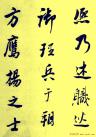 熙乃述職巡
御理兵于朔
方鷹揚之士